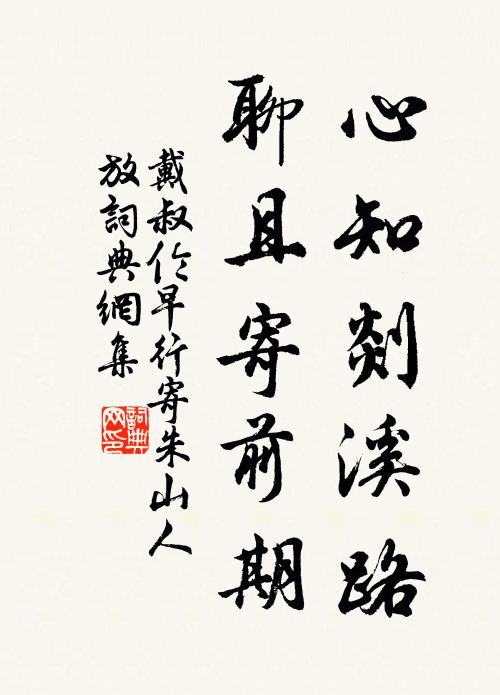 心知剡溪路
聊且寄前期
戴叔伦早行寄朱山人
放詞典網集
詞典网印